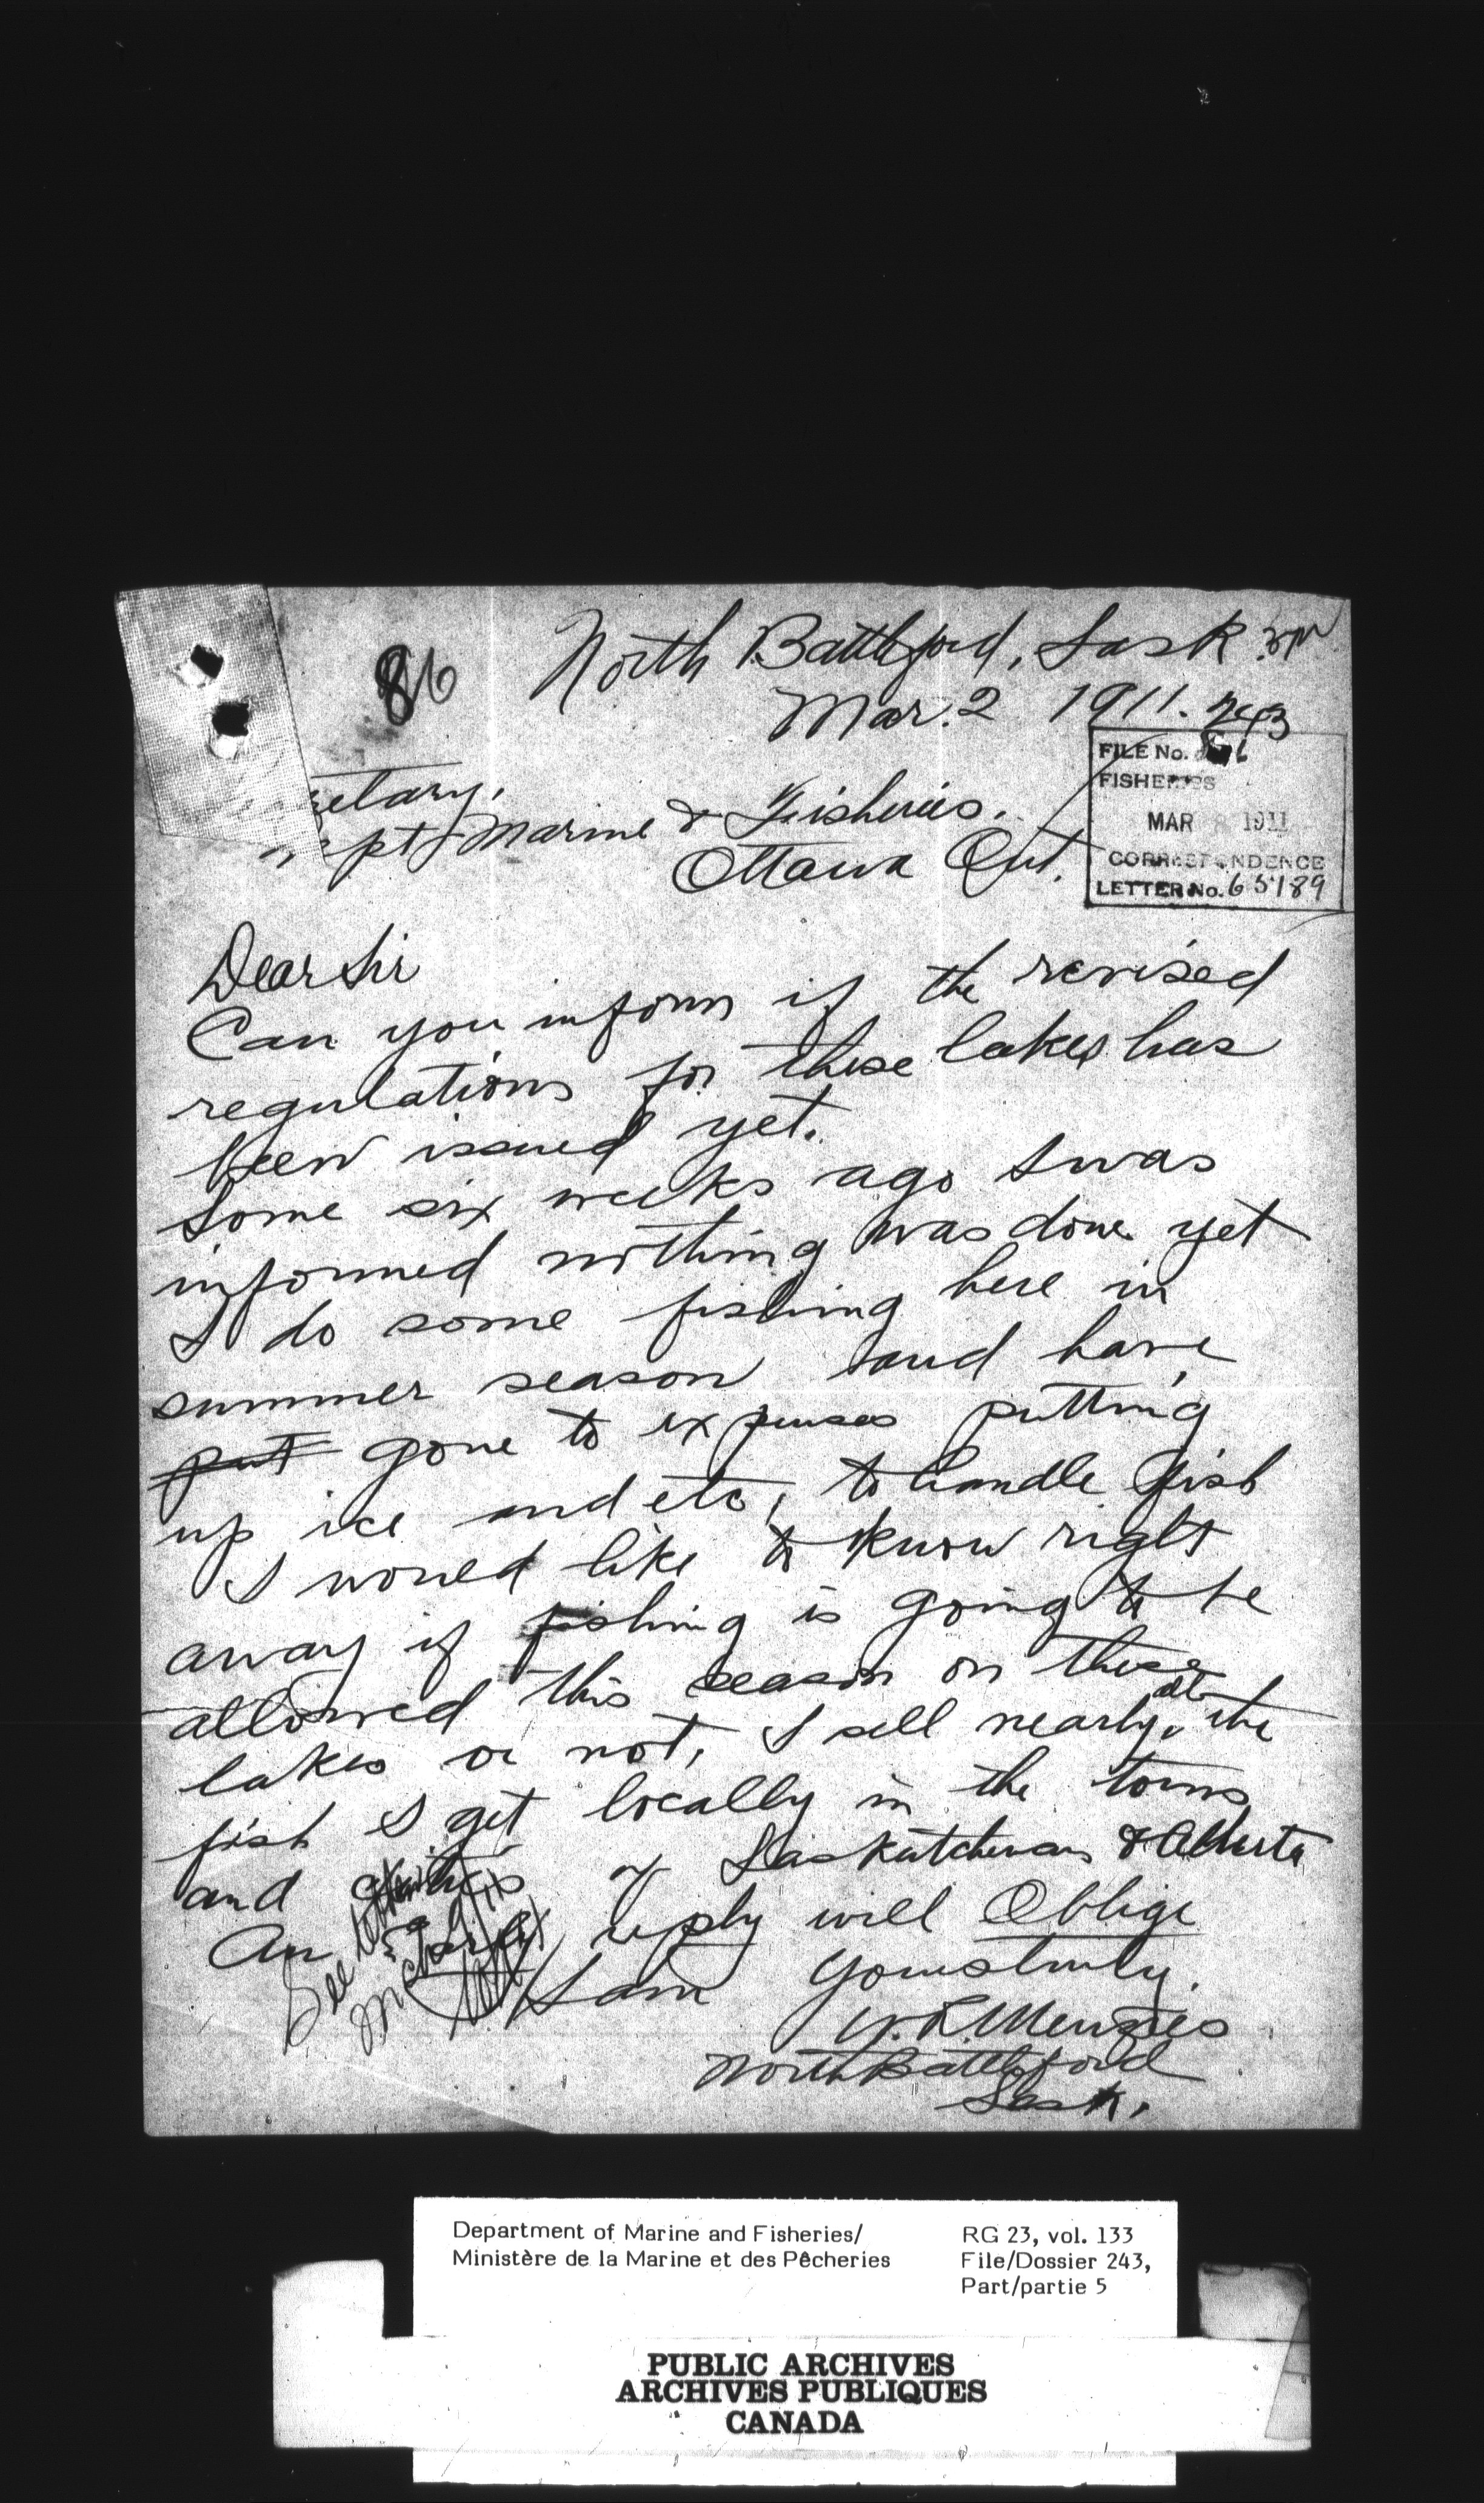 86
North Battleford, Sask
Mar. 2 1911.
243
FILE No.
FISHERIES
MAR 8 1911
CORRESPONDENCE
LETTER No. 65189
retary,
ept Marine & Fisheries.
Ottawa Ont.
Dear Sir
Can you inform if the revised
regulations for these lakes has
been issued yet.
Some six weeks ago I was
informed nothing was done yet
I do some fishing here in
summer season and have
put gone to expenses putting
up ice and etc, to handle fish
I would like to know right
away if fishing is going to be
allowed this season on these
lakes or not, I sell nearly all the
fish I get locally in the towns
and of Saskatchewan & Alberta
An reply will Oblige
I am yours truly.
W. R. Menzies
North Battleford
Sask.
See
Department of Marine and Fisheries/
Ministère de la Marine et des Pêcheries
RG 23, vol. 133
File/Dossier 243,
Part/partie 5
PUBLIC ARCHIVES
ARCHIVES PUBLIQUES
CANADA